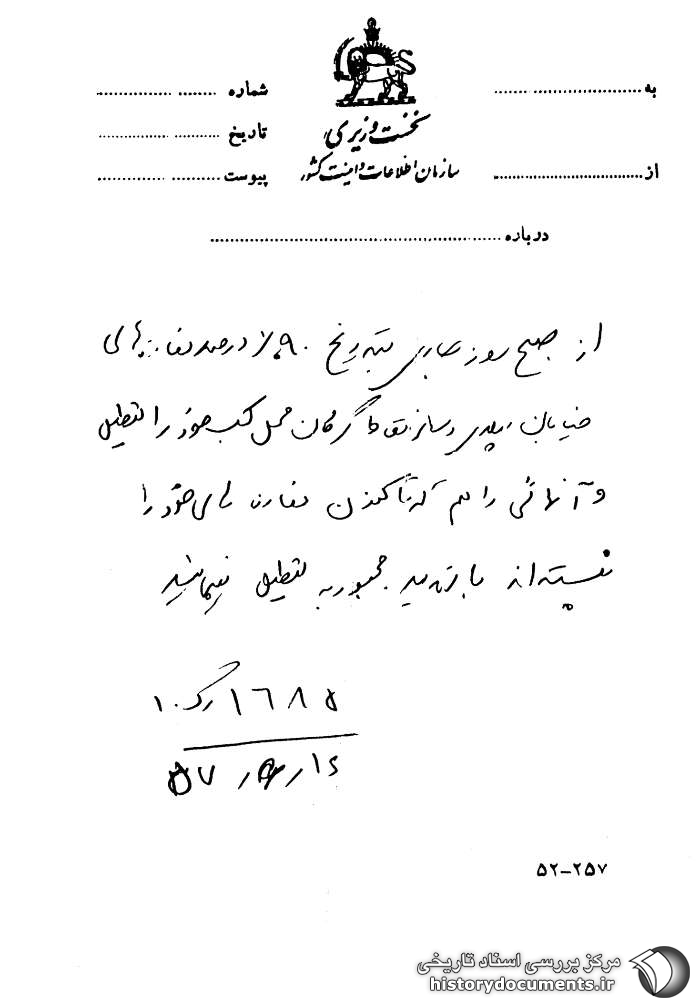 نخست وزیری
سازمان اطلاعات و امنیت کشور
به
از
شماره
تاریخ
پیوست
درباره
از صبح روز جاری بتدریج ۹۰٪ درصد مغازه های
خیابان پهلوی و سایر نقاط گرگان محل کسب خود را تعطیل
و آنهائی را هم که تاکنون مغازه های خود را
نبسته‌اند با تهدید مجبور به تعطیل مینمایند
۱۶۸۵ /گ ۱۰
۵۷
۵۲-۲۵۷
مرکز بررسی اسناد تاریخی
historydocuments.ir